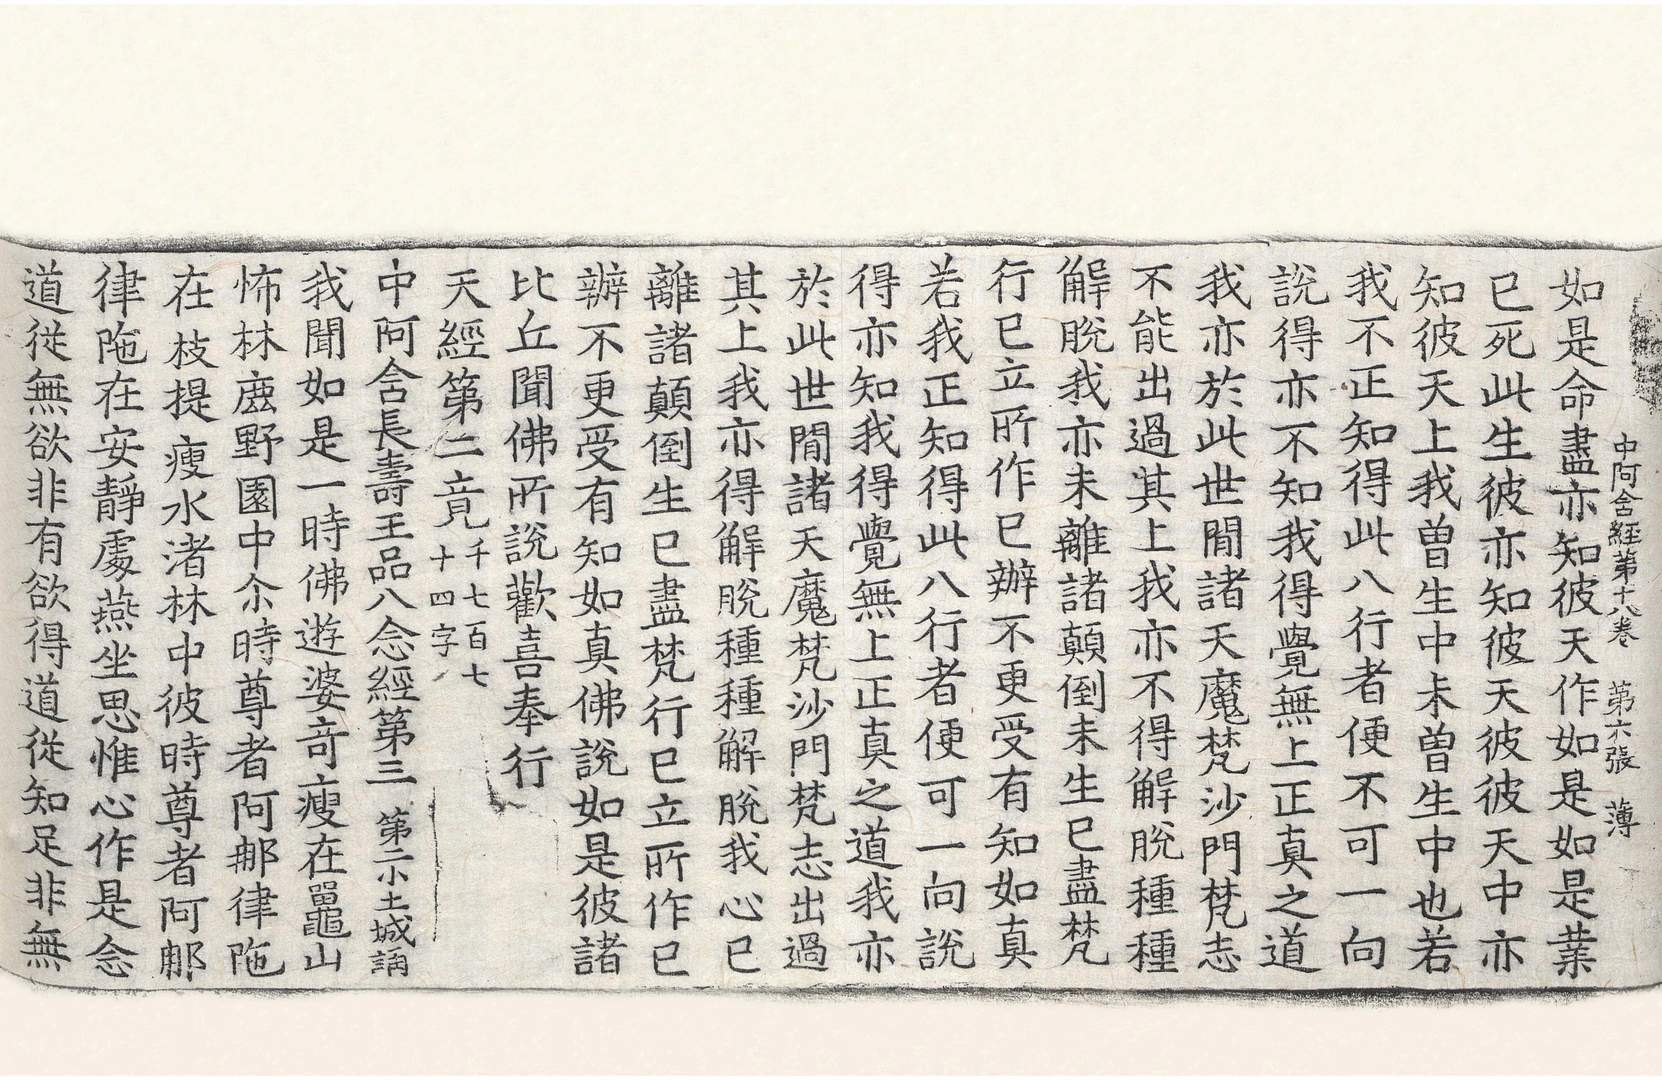 中阿含經第十八卷　第六張　薄
如是命盡亦知彼天作如是如是業
已死此生彼亦知彼天彼彼天中亦
知彼天上我曾生中未曾生中也若
我不正知得此八行者便不可一向
說得亦不知我得覺無上正真之道
我亦於此世間諸天魔梵沙門梵志
不能出過其上我亦不得解脫種種
解脫我亦未離諸顛倒未生已盡梵
行已立所作已辦不更受有知如真
若我正知得此八行者便可一向說
得亦知我得覺無上正真之道我亦
於此世間諸天魔梵沙門梵志出過
其上我亦得解脫種種解脫我心已
離諸顛倒生已盡梵行已立所作已
辦不更受有知如真佛說如是彼諸
比丘聞佛所說歡喜奉行
天經第二竟千七百七十四字
中阿含長壽王品八念經第三　第二小土城誦
我聞如是一時佛遊婆奇瘦在鼉山
怖林鹿野園中尒時尊者阿那律陁
在枝提瘦水渚林中彼時尊者阿那
律陁在安靜處燕坐思惟心作是念
道從無欲非有欲得道從知足非無